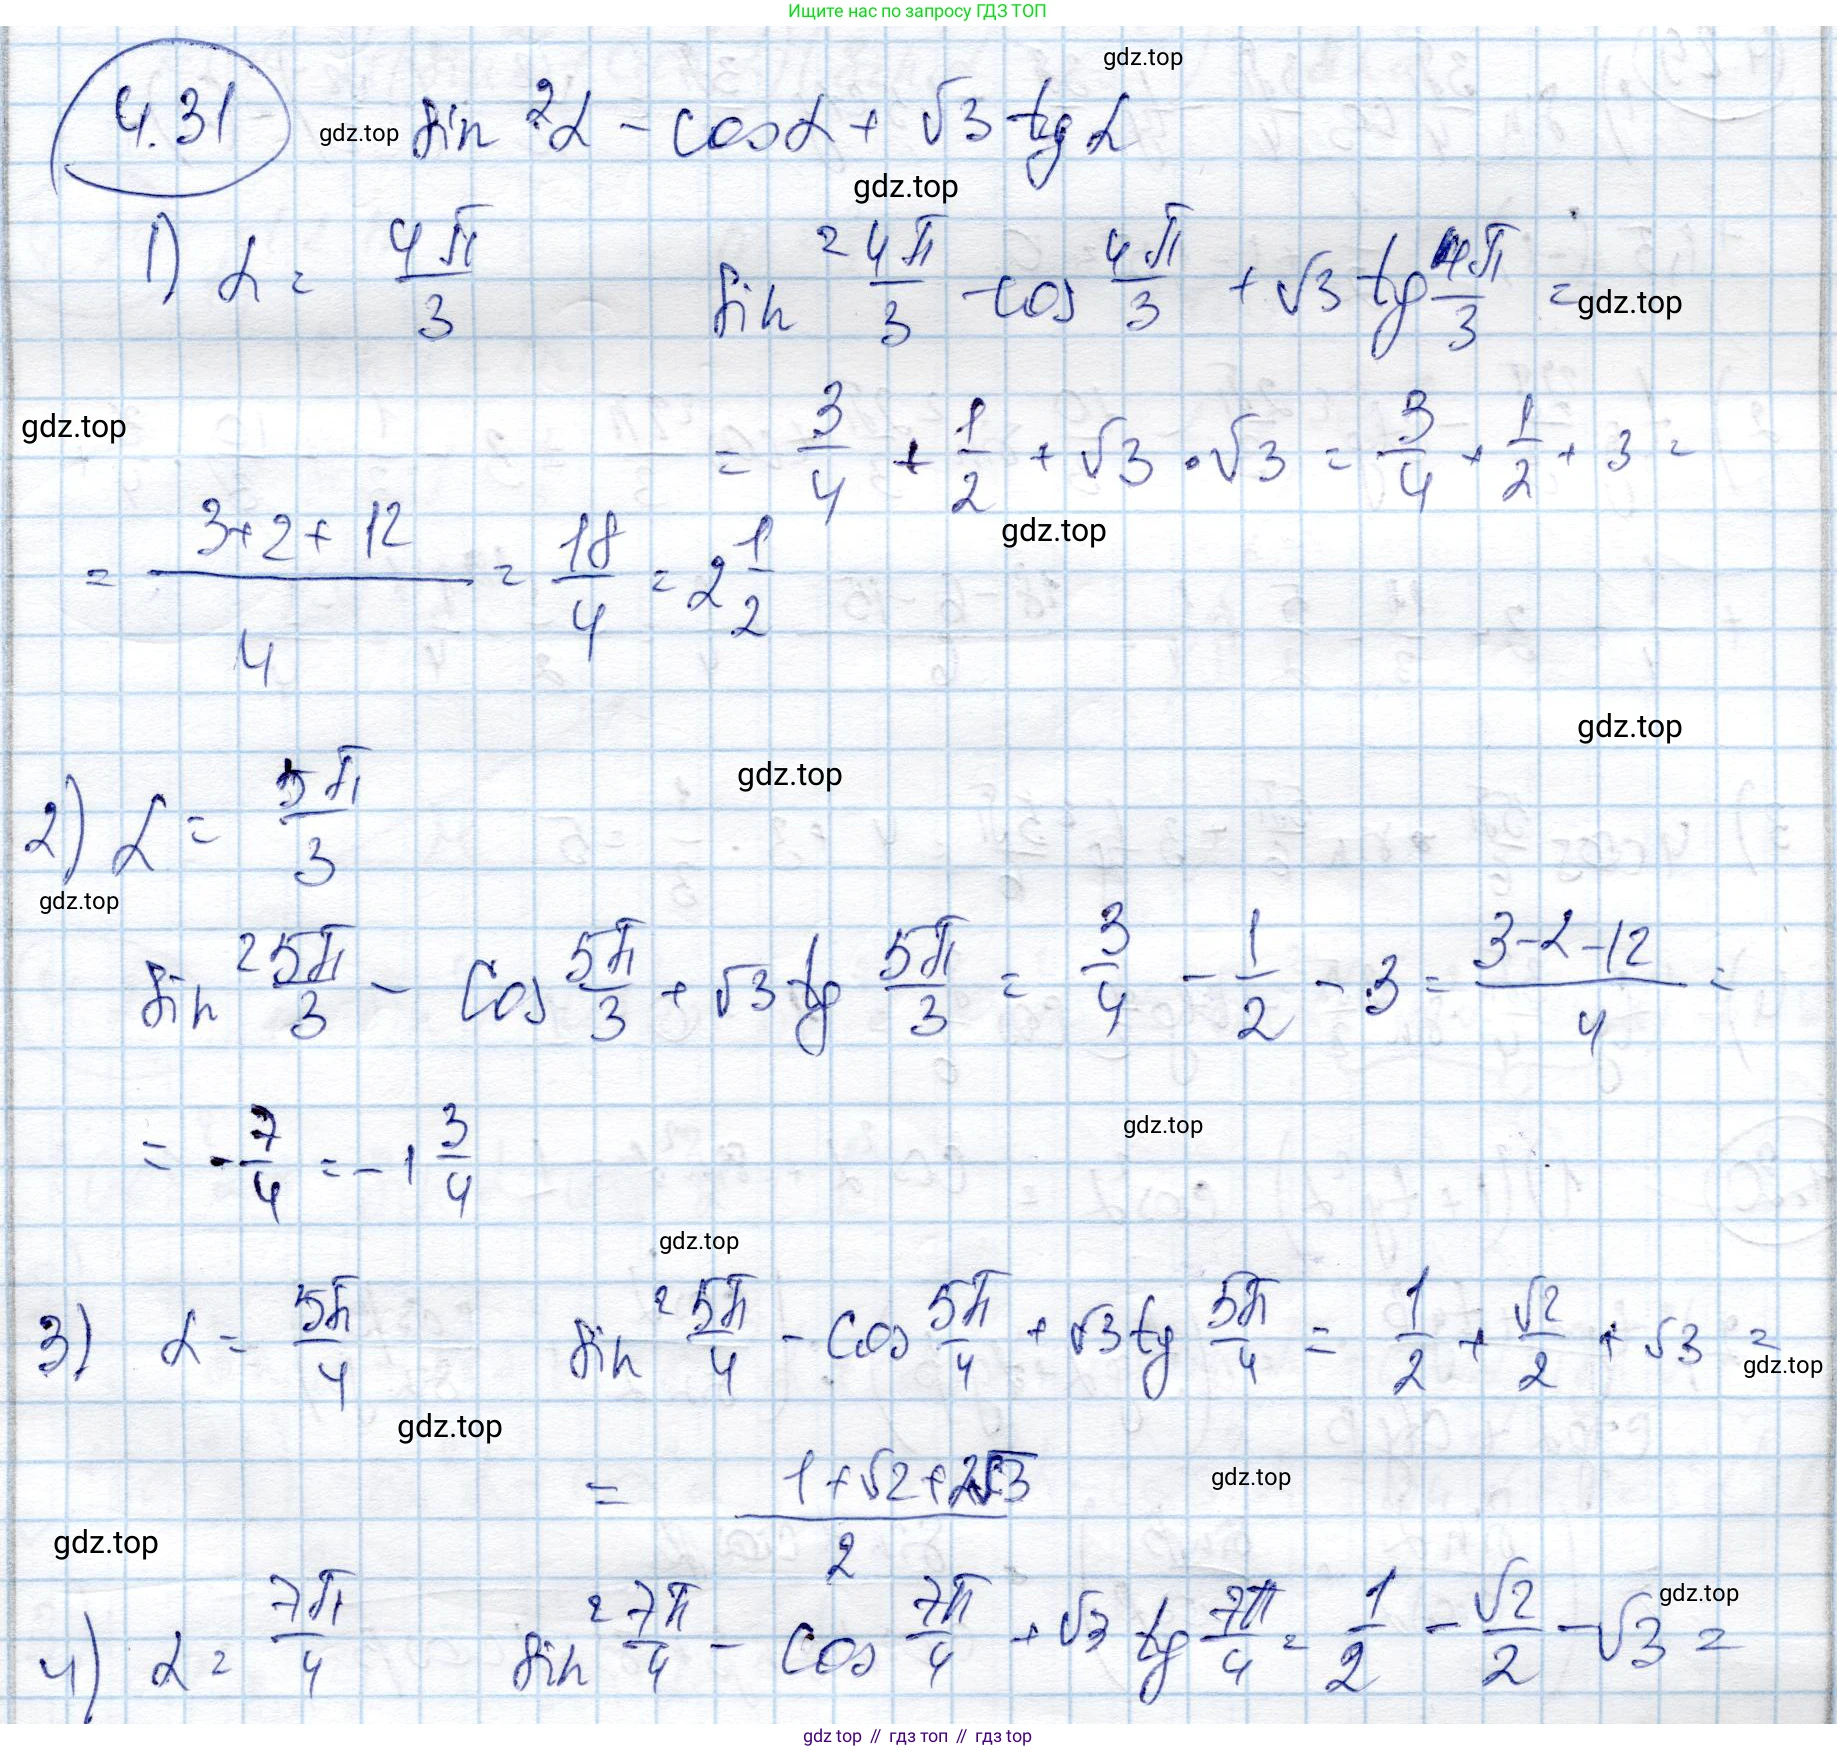 Ищите нас по запросу ГДЗ ТОП
gdz.top
4.31 gdz.top sin²α - cosα + √3 tg α
gdz.top
1) α = 4π/3 sin² 4π/3 - cos 4π/3 + √3 tg 4π/3 =
gdz.top
gdz.top
= 3/4 + 1/2 + √3 · √3 = 3/4 + 1/2 + 3 =
gdz.top
= (3+2+12)/4 = 18/4 = 2 1/2
gdz.top
gdz.top
2) α = 5π/3
gdz.top
sin² 5π/3 - cos 5π/3 + √3 tg 5π/3 = 3/4 - 1/2 - 3 = (3-2-12)/4 =
gdz.top
= -7/4 = -1 3/4
gdz.top
3) α = 5π/4 sin² 5π/4 - cos 5π/4 + √3 tg 5π/4 = 1/2 + √2/2 + √3 =
gdz.top
gdz.top
= (1+√2+2√3)/2
gdz.top
gdz.top
4) α = 7π/4 sin² 7π/4 - cos 7π/4 + √3 tg 7π/4 = 1/2 - √2/2 - √3 =
gdz.top
gdz top // гдз топ // gdz top